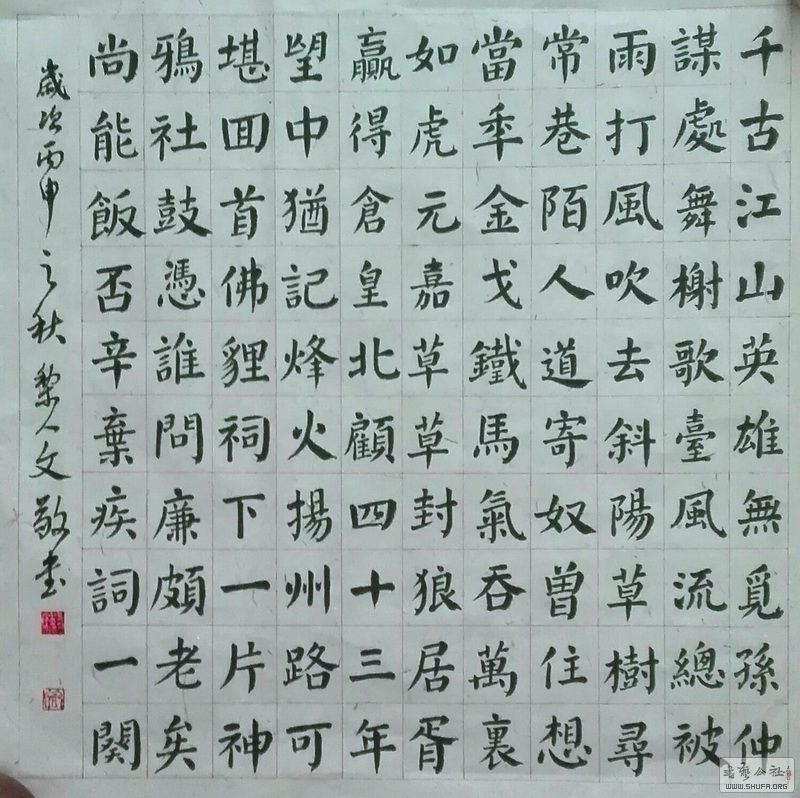 千古江山英雄無覓孫仲
謀處舞榭歌臺風流總被
雨打風吹去斜陽草樹尋
常巷陌人道寄奴曾住想
當秊金戈鐵馬氣吞萬裏
如虎元嘉草草封狼居胥
贏得倉皇北顧四十三年
望中猶記烽火揚州路可
堪囬首佛貍祠下一片神
鴉社鼓憑誰問廉頗老矣
尚能飯否辛棄疾詞一闋
歲次丙申之秋黎人文敬書
書藝公社
WWW.SHUFA.ORG